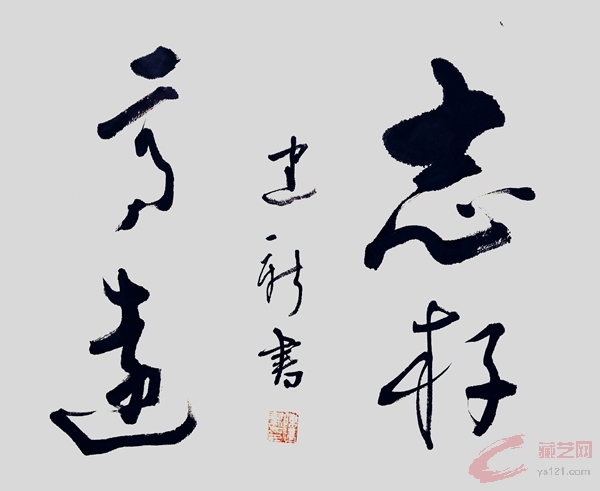 志存
高遠
建新書
藏艺网
ys121.com